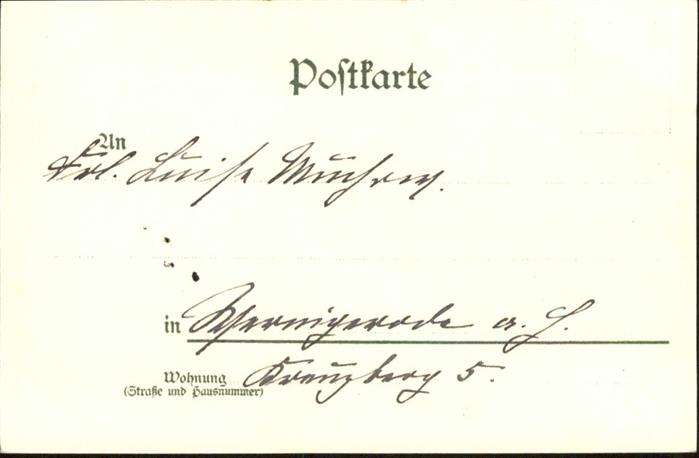 Postkarte
An
Frl. Luise Muchow.
in Wernigerode a. H.
Wohnung Kreuzberg 5.
(Straße und Hausnummer)